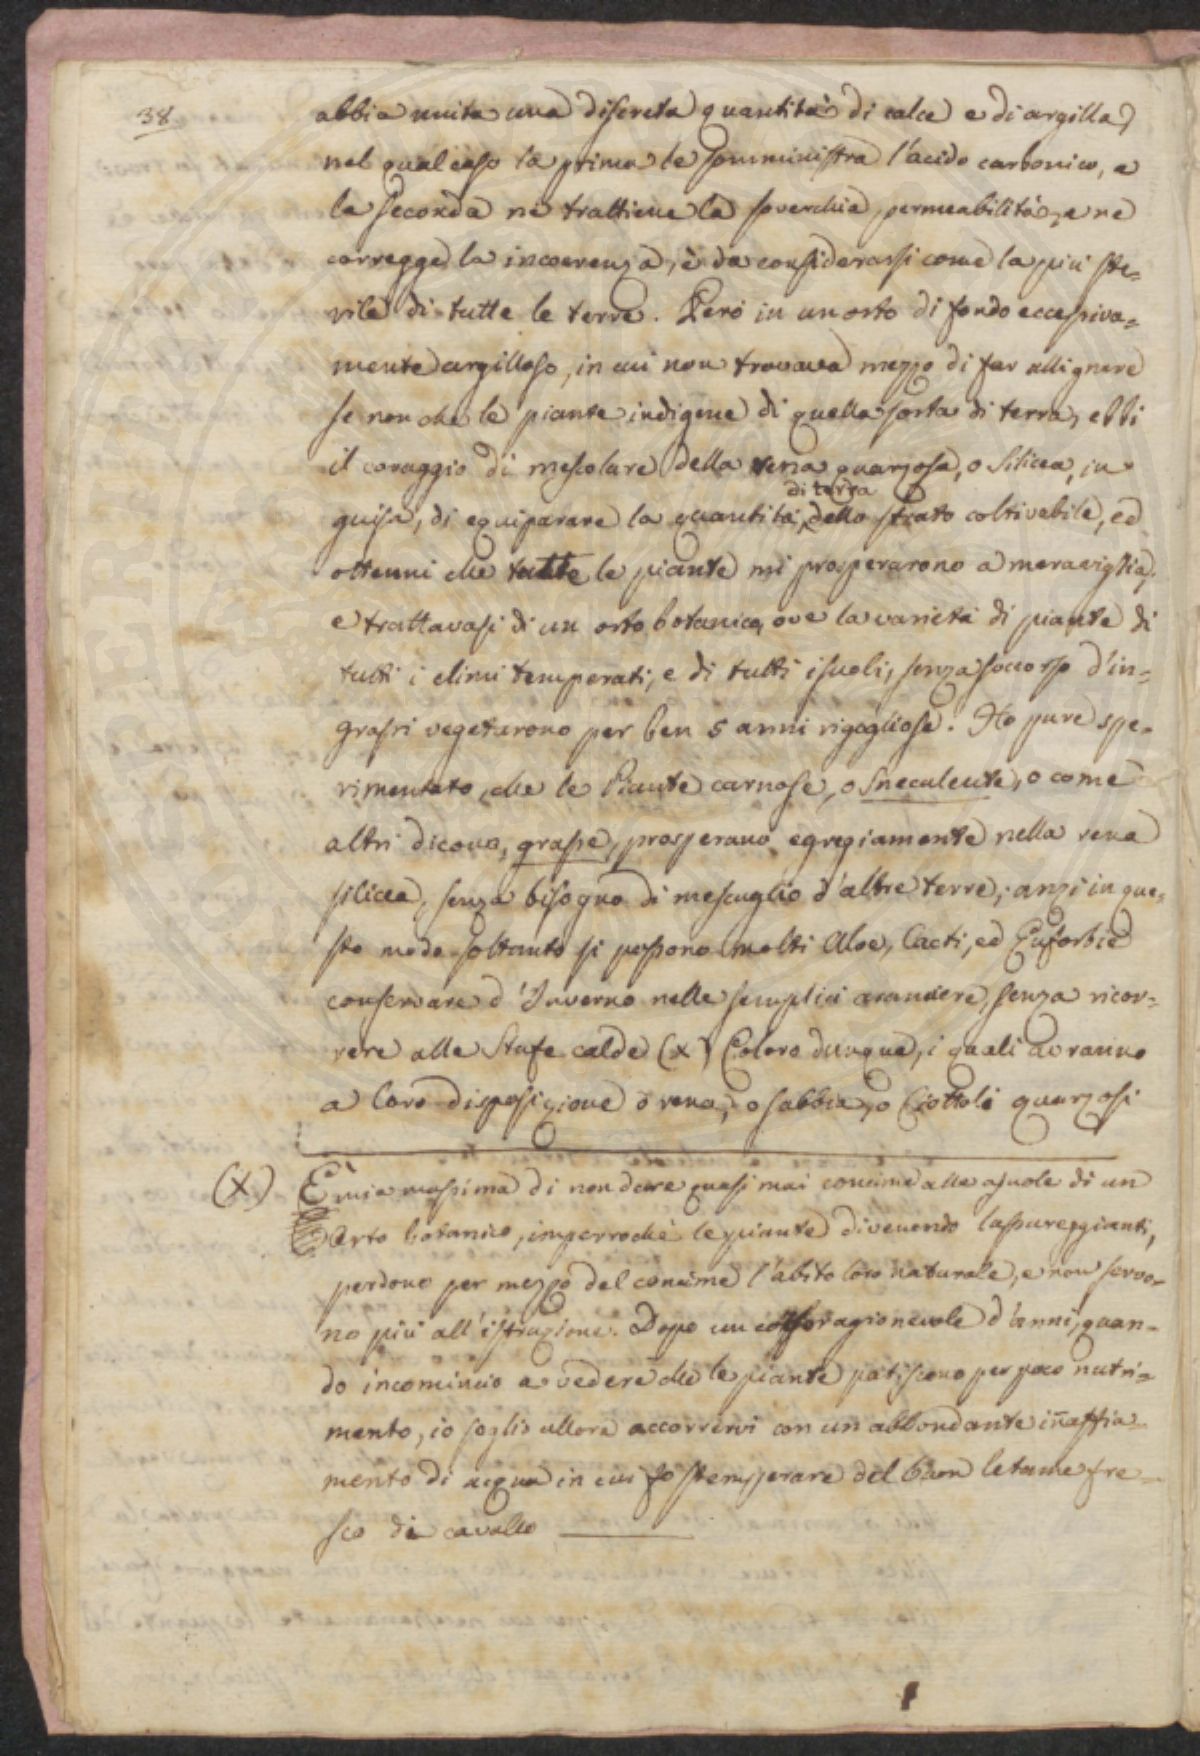 38
abbia unita una discreta quantità di calce e di argilla,
nel qual caso la prima le somministra l'acido carbonico, e
la seconda ne trattiene la soverchia permeabilità, e ne
corregge la incoerenza, è da considerarsi come la più ste-
rile di tutte le terre. Però in un orto di fondo eccessiva-
mente argilloso, in cui non trovava mezzo di far allignare
se non che le piante indigene di quella sorta di terra, ebbi
il coraggio di mescolare della rena quarzosa, o silicea, in
di terra
guisa, di equiparare la quantità, dello strato coltivabile, ed
ottenni che tutte le piante mi prosperarono a meraviglia,
e trattavasi di un orto botanico, ove la varietà di piante di
tutti i climi temperati, e di tutti i suoli, senza soccorso d'in-
grassi vegetarono per ben 5 anni rigogliose. Ho pure spe-
rimentato, che le Piante carnose, o succulente, o come
altri dicono, grasse, prosperano egregiamente nella rena
silicea, senza bisogno di mescuglio d'altre terre; anzi in que-
sto modo soltanto si possono molti Aloe, Cacti, ed Euforbie
conservare d'Inverno nelle semplici aranciere, senza ricor-
rere alle Stufe calde (x) Coloro dunque, i quali avranno
a loro disposizione o rena, o sabbia, o Ciottoli quarzosi
(X) È mia massima di non dare quasi mai concime alle ajuole di un
Orto botanico, imperrochè le piante divenendo lassureggianti,
perdono per mezzo del concime l'abito loro naturale, e non servo-
no più all'istruzione. Dopo un corso ragionevole d'anni, quan-
do incomincio a vedere che le piante patiscono per poco nutri-
mento, io soglio allora accorrervi con un abbondante inaffia-
mento di acqua in cui fo stemperare del buon letame fre-
sco di cavallo